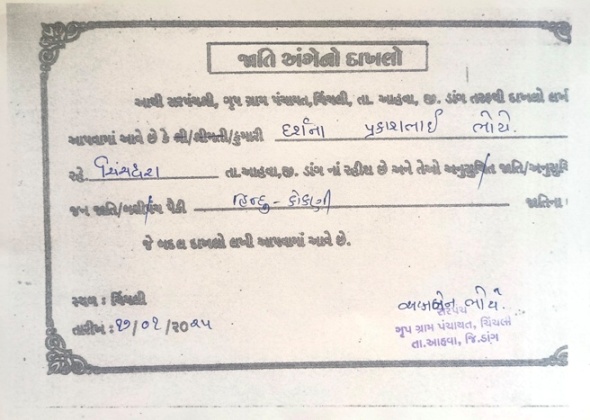 જાતિ અંગેનો દાખલો
આથી સરપંચશ્રી, ગૃપ ગ્રામ પંચાયત,ચિંચલી, તા. આહવા, જી. ડાંગ તરફથી દાખલો લખી
આપવામાં આવે છે કે શ્રી/શ્રીમતી/કુમારી દર્શના પ્રકાશભાઈ ભોયે.
રહે. તા.આહવા,જી. ડાંગ નાં રહીશ છે અને તેઓ અનુસુચિત જાતિ/અનુસુચિ
જન જાતિ/બક્ષીપંચ પૈકી હિન્દુ - કોકણી જાતિના
જે બદલ દાખલો લખી આપવામાં આવે છે.
સ્થળ : ચિંચલી
તારીખ : /૦૧/૨૦૨૫
ભોયે.
સરપંચ
ગૃપ ગ્રામ પંચાયત, ચિંચલી
તા.આહવા, જિ.ડાંગ